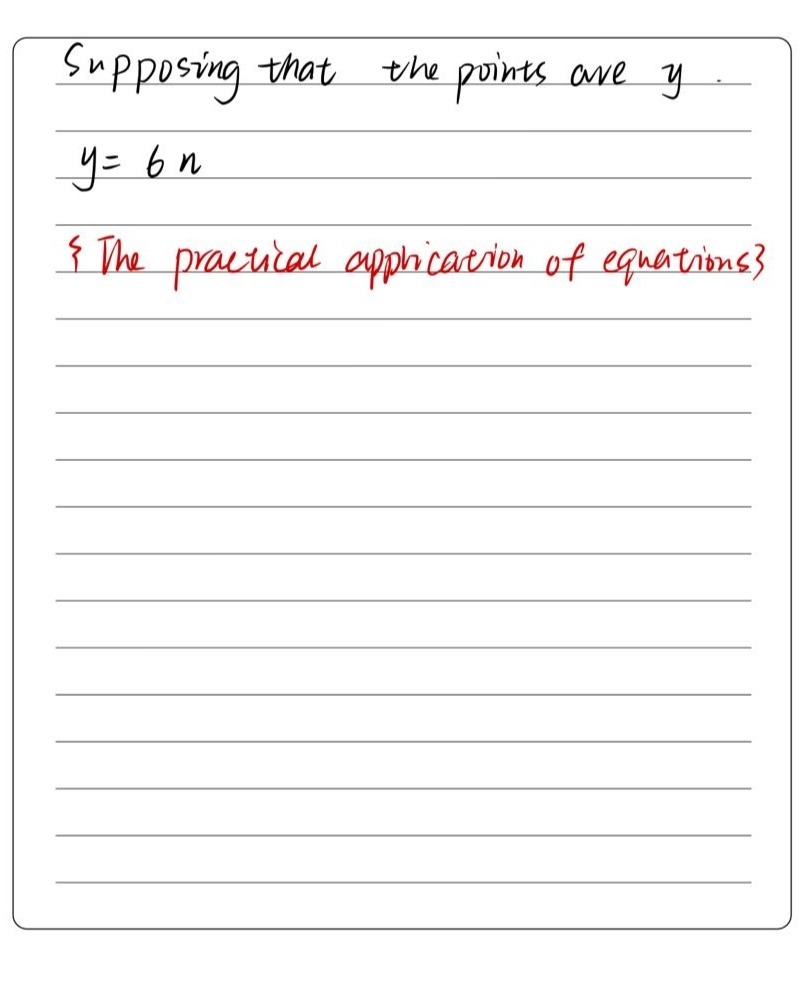 Supposing that the points are y .
y = 6 n
{ The practical application of equations}